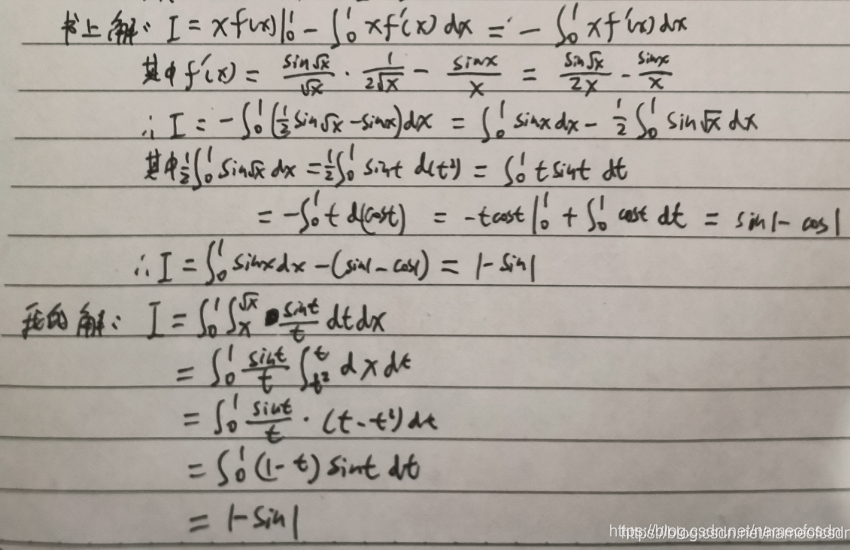 书上解: I = xf(x)|₀¹ - ∫₀¹ xf'(x) dx = - ∫₀¹ xf'(x) dx
其中 f'(x) = sin√x/√x · 1/(2√x) - sinx/x = sin√x/2x - sinx/x
∴ I = -∫₀¹ (½ sin√x - sinx) dx = ∫₀¹ sinx dx - ½ ∫₀¹ sin√x dx
其中 ½∫₀¹ sin√x dx = ½∫₀¹ sint d(t²) = ∫₀¹ t sint dt
= -∫₀¹ t d(cost) = -tcost|₀¹ + ∫₀¹ cost dt = sin1 - cos1
∴ I = ∫₀¹ sinx dx - (sin1 - cos1) = 1 - sin1
我的解: I = ∫₀¹ ∫ₓ^√x sint/t dt dx
= ∫₀¹ sint/t ∫_{t²}^t dx dt
= ∫₀¹ sint/t · (t - t²) dt
= ∫₀¹ (1 - t) sint dt
= 1 - sin1
https://blog.csdn.net/nameofcsdn